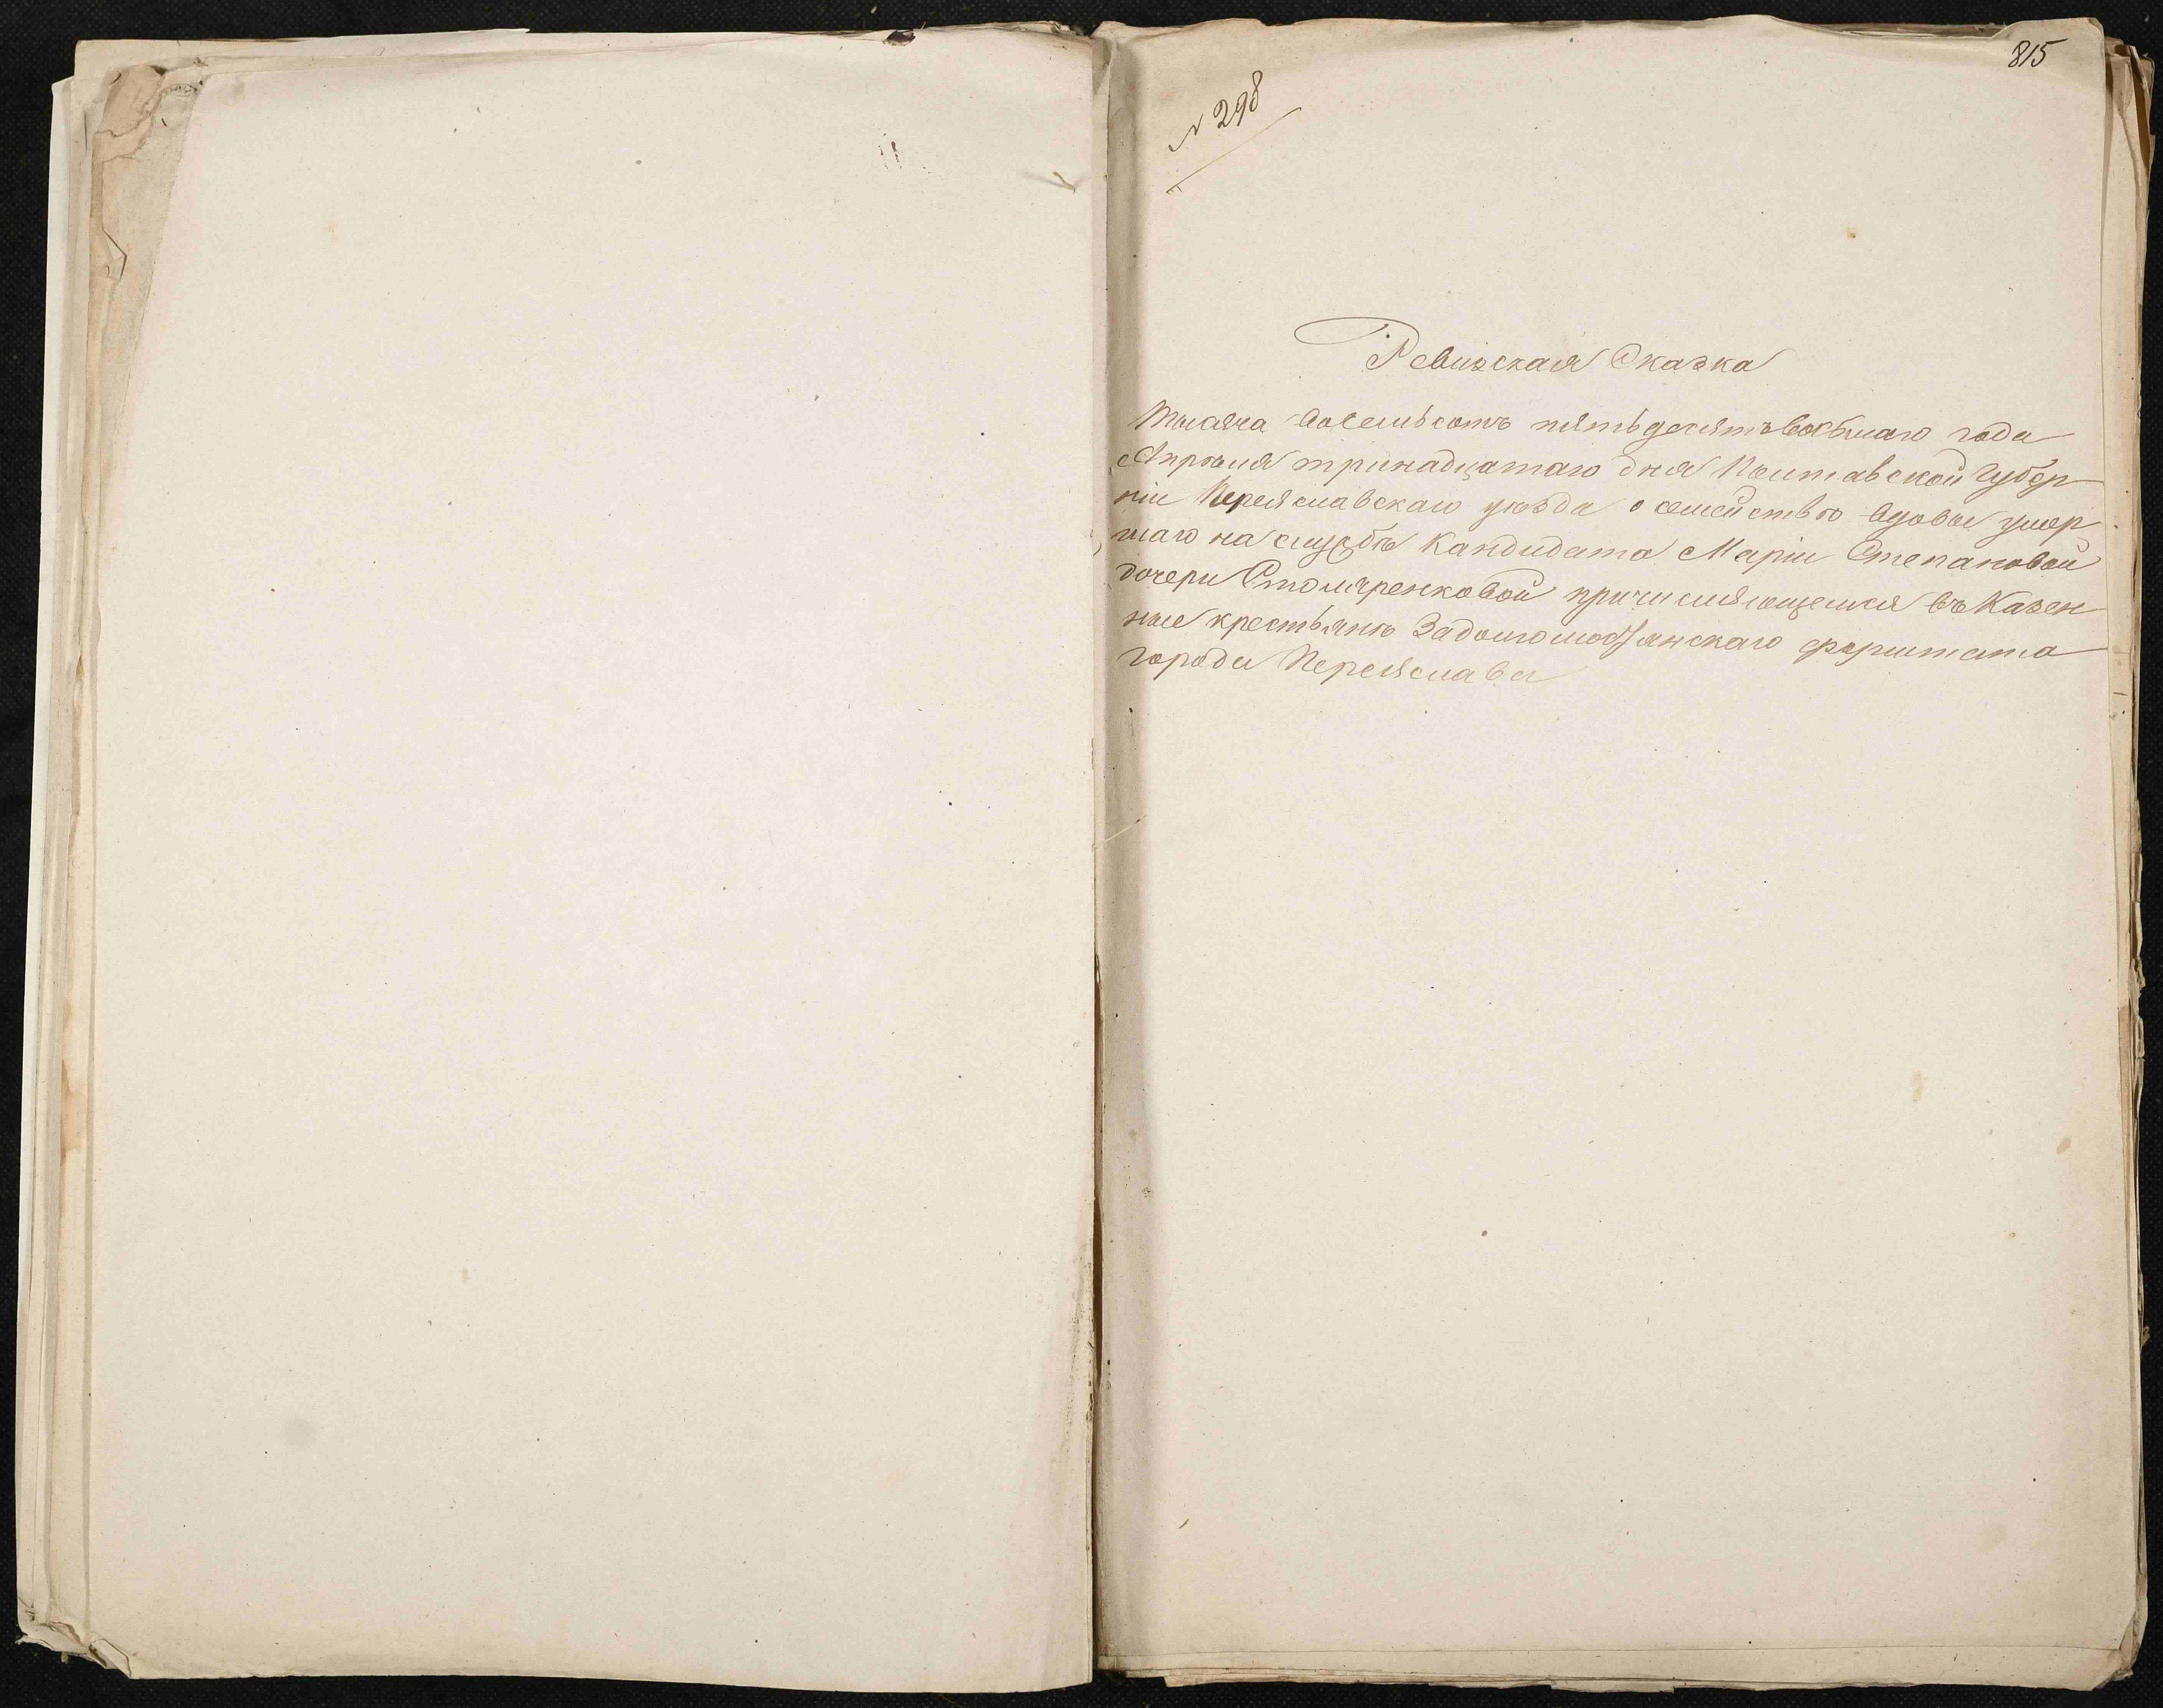 815
№ 298
Ревизская Сказка
Тысяча восемьсотъ пятьдесятъ восьмаго года
Апрѣля тринадцатаго дня Полтавской Губер
ніи Переяславскаго уѣзда о семействѣ вдовы умер
шаго на службѣ Кандидата Маріи Степановой
дочери Столяренковой причисляющемся въ Казен
ные крестьянѣ форштата
города Переяслава